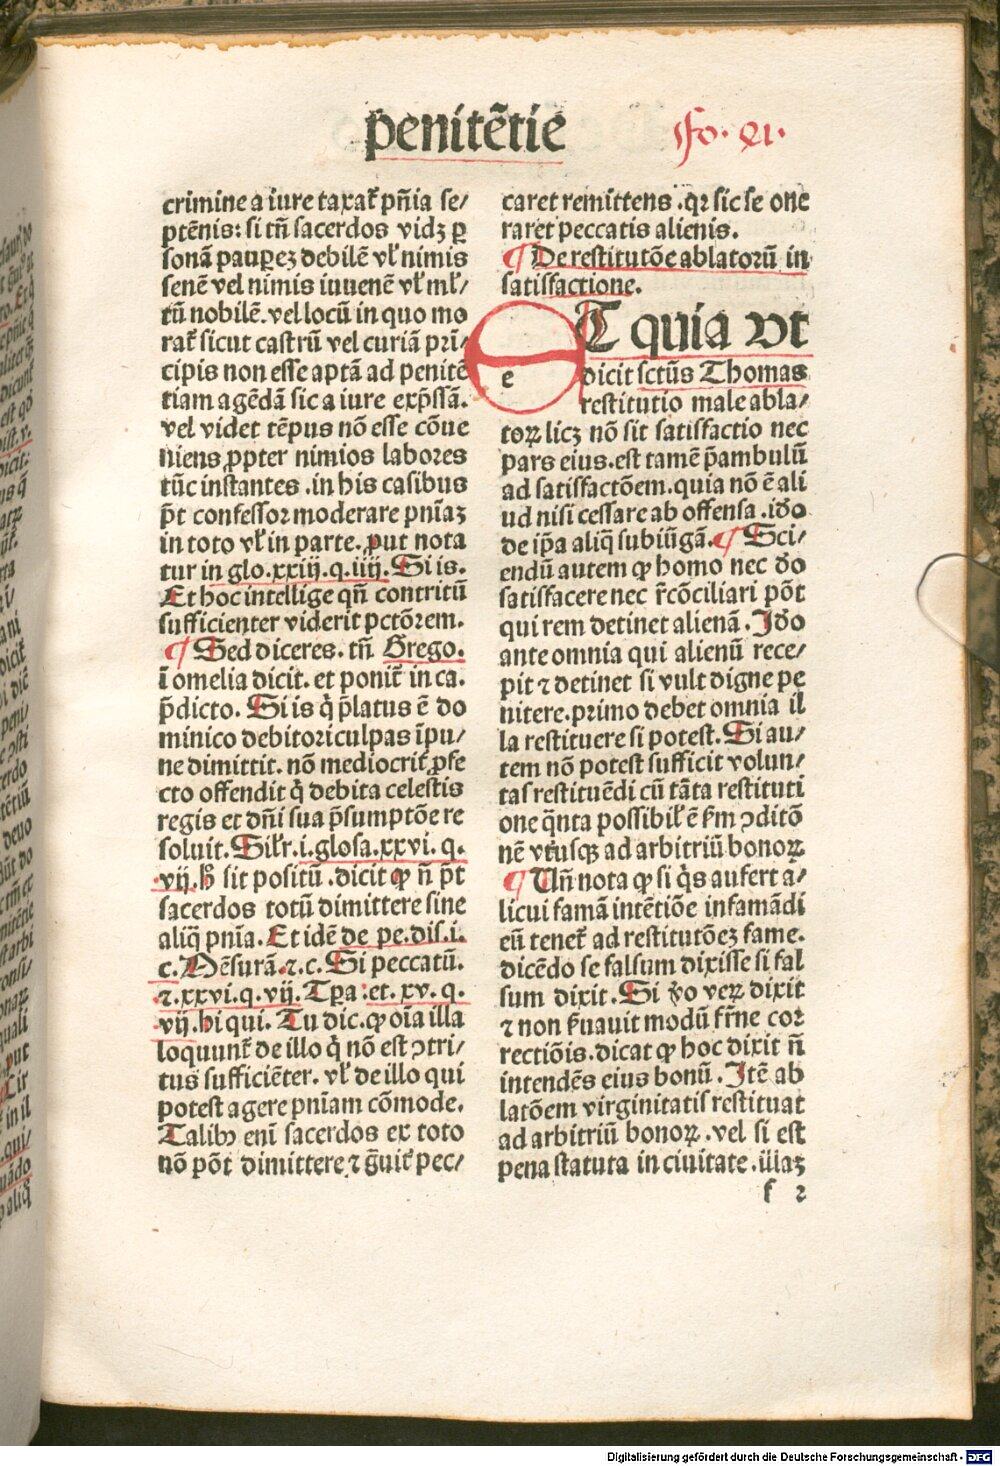 p̄enitētie
fo. xli.
crimine a iure taxat̄ pn̄ia se/
ptēnis: si tn̄ sacerdos vidꝫ ꝑ
sonā pauꝑeꝫ debilē vl̓ nimis
senē vel nimis iuuenē vl̓ ml̓/
tū nobilē. vel locū in quo mo
rat̄ sicut castrū vel curiā prī/
cipis non esse aptā ad penitē
tiam agēdā sic a iure exp̄ssā.
vel videt tēpus nō esse cōue
niens ꝓpter nimios labores
tūc instantes .in his casibus
p̄t confessor moderare pnīaꝫ
in toto vl̓ in parte. ꝓut nota
tur in glo. xxiij. q. iiij. Si is.
Et hoc intellige qn̄ contritū
sufficienter viderit pctōrem.
¶ Sed diceres. tn̄ Grego.
ī omelia dicit. et ponit̄ in ca.
p̄dicto. Si is q̄ p̄latus ē do
minico debitori culpas īpu/
ne dimittit. nō mediocrit̄ ꝓfe
cto offendit q̄ debita celestis
regis et dn̄i sua p̄sumptōe re
soluit. Sil̓r. i. glosa. xxvi. q.
vij. hͦ sit positū .dicit ꝙ n̄ p̄t
sacerdos totū dimittere sine
aliq̄ pnīa. Et idē de pe. dis. i.
c. Mēsurā. ⁊. c. Si peccatū.
⁊. xxvi. q. vij. Tꝑa: et. xv. q.
vij. hi qui. Tu dic. ꝙ oīa illa
loquunt̄ de illo q̄ nō est ↄtri/
tus sufficiēter. vl̓ de illo qui
potest agere pniam cōmode.
Talibꝰ enī sacerdos ex toto
nō pōt dimittere ⁊ ḡuit̓ pec/
caret remittens .qꝛ sic se one
raret peccatis alienis.
¶ De restitutōe ablatorū in
satisfactione.
e
ET quia vt
dicit sctūs Thomas
restitutio male abla/
toꝝ licꝫ nō sit satisfactio nec
pars eius. est tamē p̄ambulū
ad satisfactōem. quia nō ē ali
ud nisi cessare ab offensa .iđo
de ip̄a aliq̄ subiūgā. ¶ Sci/
endū autem ꝙ homo nec đo
satisfacere nec r̄cōciliari pōt
qui rem detinet alienā. Iđo
ante omnia qui alienū rece/
pit ⁊ detinet si vult digne pe
nitere. primo debet omnia il
la restituere si potest. Si au/
tem nō potest sufficit volun/
tas restituēdi cū tāta restituti
one q̄nta possibil̓ ē ẜm ↄditō
nē vtriusqꝫ ad arbitriū bonoꝝ
¶ Un̄ nota ꝙ si q̄s aufert a/
licui famā intētiōe infamādi
eū tenet̄ ad restitutōeꝫ fame.
dicēdo se falsum dixisse si fal
sum dixit. Si v̓o veꝝ dixit
⁊ non ẜuauit modū fr̄ne cor
rectiōis. dicat ꝙ hoc dixit n̄
intendēs eius bonū. Itē ab
latōem virginitatis restituat
ad arbitriū bonoꝝ .vel si est
pena statuta in ciuitate. illaꝫ
f 2
Digitalisierung gefördert durch die Deutsche Forschungsgemeinschaft - DFG